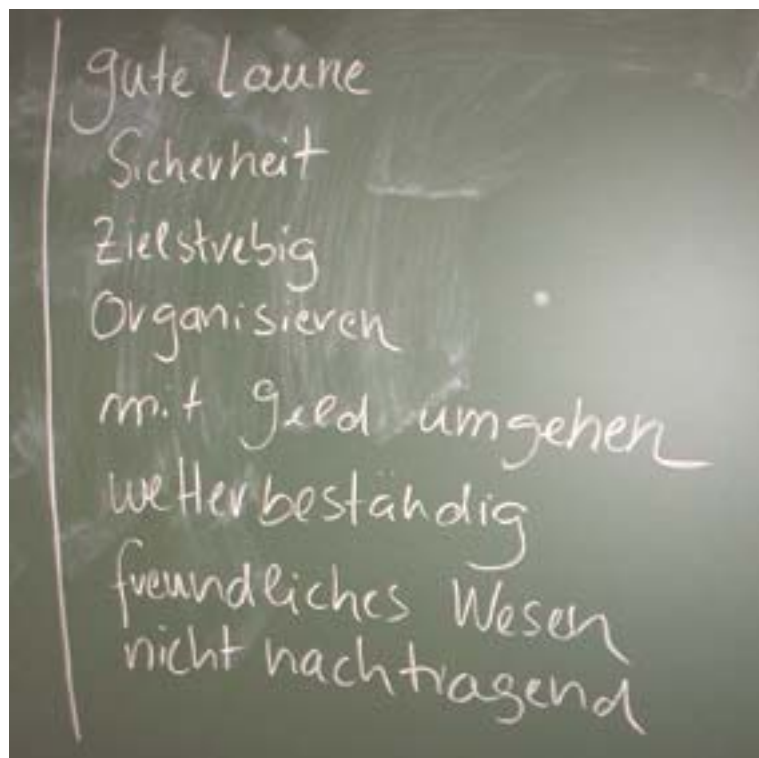 gute Laune
Sicherheit
Zielstrebig
Organisieren
mit Geld umgehen
wetterbeständig
freundliches Wesen
nicht nachtragend